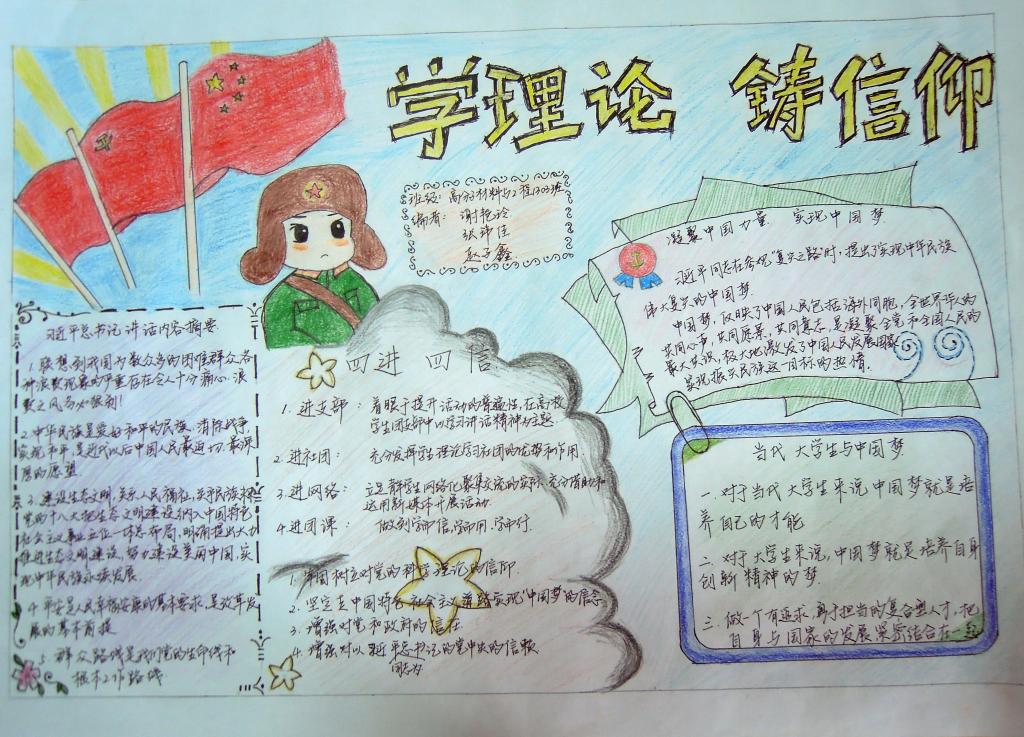 学理论 铸信仰
班级：高分子材料与工程1303班
编者：谢艳玲
张玮佳
赵子鑫
习近平总书记讲话内容摘要
1.联想到我国为数众多的困难群众,各
种浪费现象的严重存在令人十分痛心.浪
费之风务必狠刹!
2.中华民族是爱好和平的民族.消除战争,
实现和平,是近代以后中国人民最迫切.最深
厚的愿望
3.建设生态文明,关系人民福祉,关乎民族未来
党的十八大把生态文明建设纳入中国特色
社会主义事业五位一体总布局,明确提出大力
推进生态文明建设,努力建设美丽中国,实
现中华民族永续发展.
4.平安是人民幸福安康的基本要求,是改革发
展的基本前提
5.群众路线是我们党的生命线和
根本工作路线
四进 四信
1.进支部：着眼于提升活动的普遍性,在高校
学生团支部中以学习讲话精神为主题.
2.进社团：充分发挥学生理论学习社团的优势和作用.
3.进网络：立足青年学生网络化聚集交流的实际,充分借助和
运用新媒体开展活动.
4进团课：做到学而信,学而用,学而行.
1.牢固树立对党的科学理论的信仰.
2.坚定走中国特色社会主义道路实现"中国梦"的信念
3.增强对党和政府的信任
4.增强对以习近平总书记的党中央的信赖
同志为
凝聚中国力量 实现中国梦
习近平同志在参观"复兴之路"时,提出了实现中华民族
伟大复兴的中国梦.
中国梦,反映了中国人民包括海外同胞,全世界华人的
共同心声,共同愿景,共同意志.是凝聚全党和全国人民的
最大共识,极大地激发了中国人民发展国家
实现振兴民族这一目标的热情.
当代大学生与中国梦
一.对于当代大学生来说中国梦就是培
养自己的才能
二.对于大学生来说,中国梦就是培养自身
创新精神的梦.
三.做一个有追求,勇于担当的复合型人才,把
自身与国家的发展紧密结合在一起